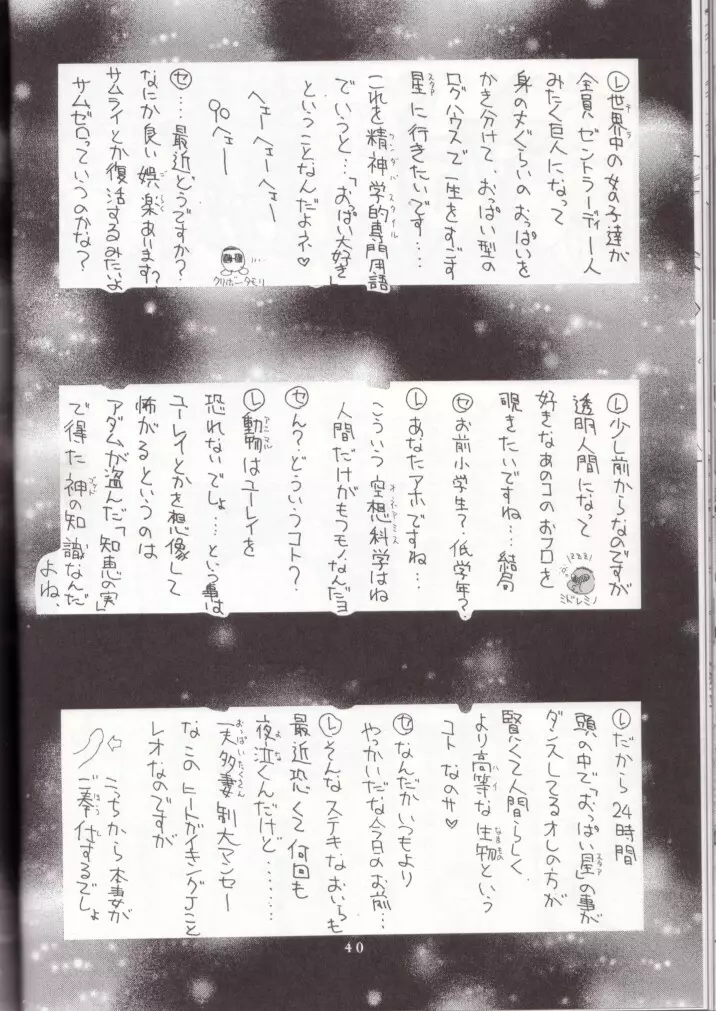 Ⓛ世界中の女の子達が
全員ゼントラーディー人
みたく巨人になって
身の丈ぐらいのおっぱいを
かき分けて、おっぱい型の
ログハウスで一生をすごす
星に行きたいです…
スタア
これを精神学的専門用語
でいうと…「おっぱい大好き」
ということなんだよネ♡
ヘェーヘェーヘェー
90ヘェー
クリボータモリ
セ…最近どうですか?
なにか良い娯楽あります?
ごらく
サムライとか復活するみたいよ
サムゼロっていうのかな?
Ⓛ少し前からなのですが
透明人間になって
好きなあのコのおフロを
覗きたいですね…結局
ミドレミノ
セお前小学生?低学年?
Ⓛあなたアホですね…
こういう空想科学はね
人間だけがもつモノなんだヨ
セん?どういうコト?
Ⓛ動物はユーレイを
アニマル
恐れないでしょ…という事は
ユーレイとかを想像して
怖がるというのは
アダムが盗んだ「知恵の実」
で得た神の知識なんだ
ゴッド
よね、
Ⓛだから24時間
頭の中で「おっぱい星」の事が
スタア
ダンスしてるオレの方が
賢くて人間らしく
より高等な生物という
ハイ
なまもの
コトなのサ♡
セなんだかいつもより
やっかいだな今日のお前…
Ⓛそんなステキなおいらも
最近恐くて何回も
夜泣くんだけど………
よな
一夫多妻制大マンセー
おっぱいたくさん
なこのヒートガイキングJこと
レオなのですが
こっちから本妻が
ご奉仕するでしょ
ほうし
40